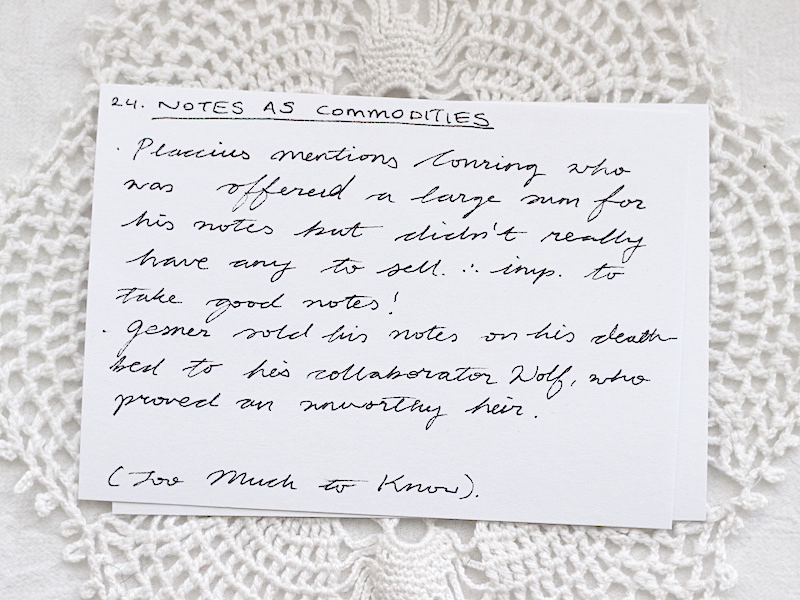 24. NOTES AS COMMODITIES
· Placcius mentions Conring who
was offered a large sum for
his notes but didn't really
have any to sell. ∴ imp. to
take good notes!
· Gesner sold his notes on his death-
bed to his collaborator Wolf, who
proved an unworthy heir.
(Too Much to Know).